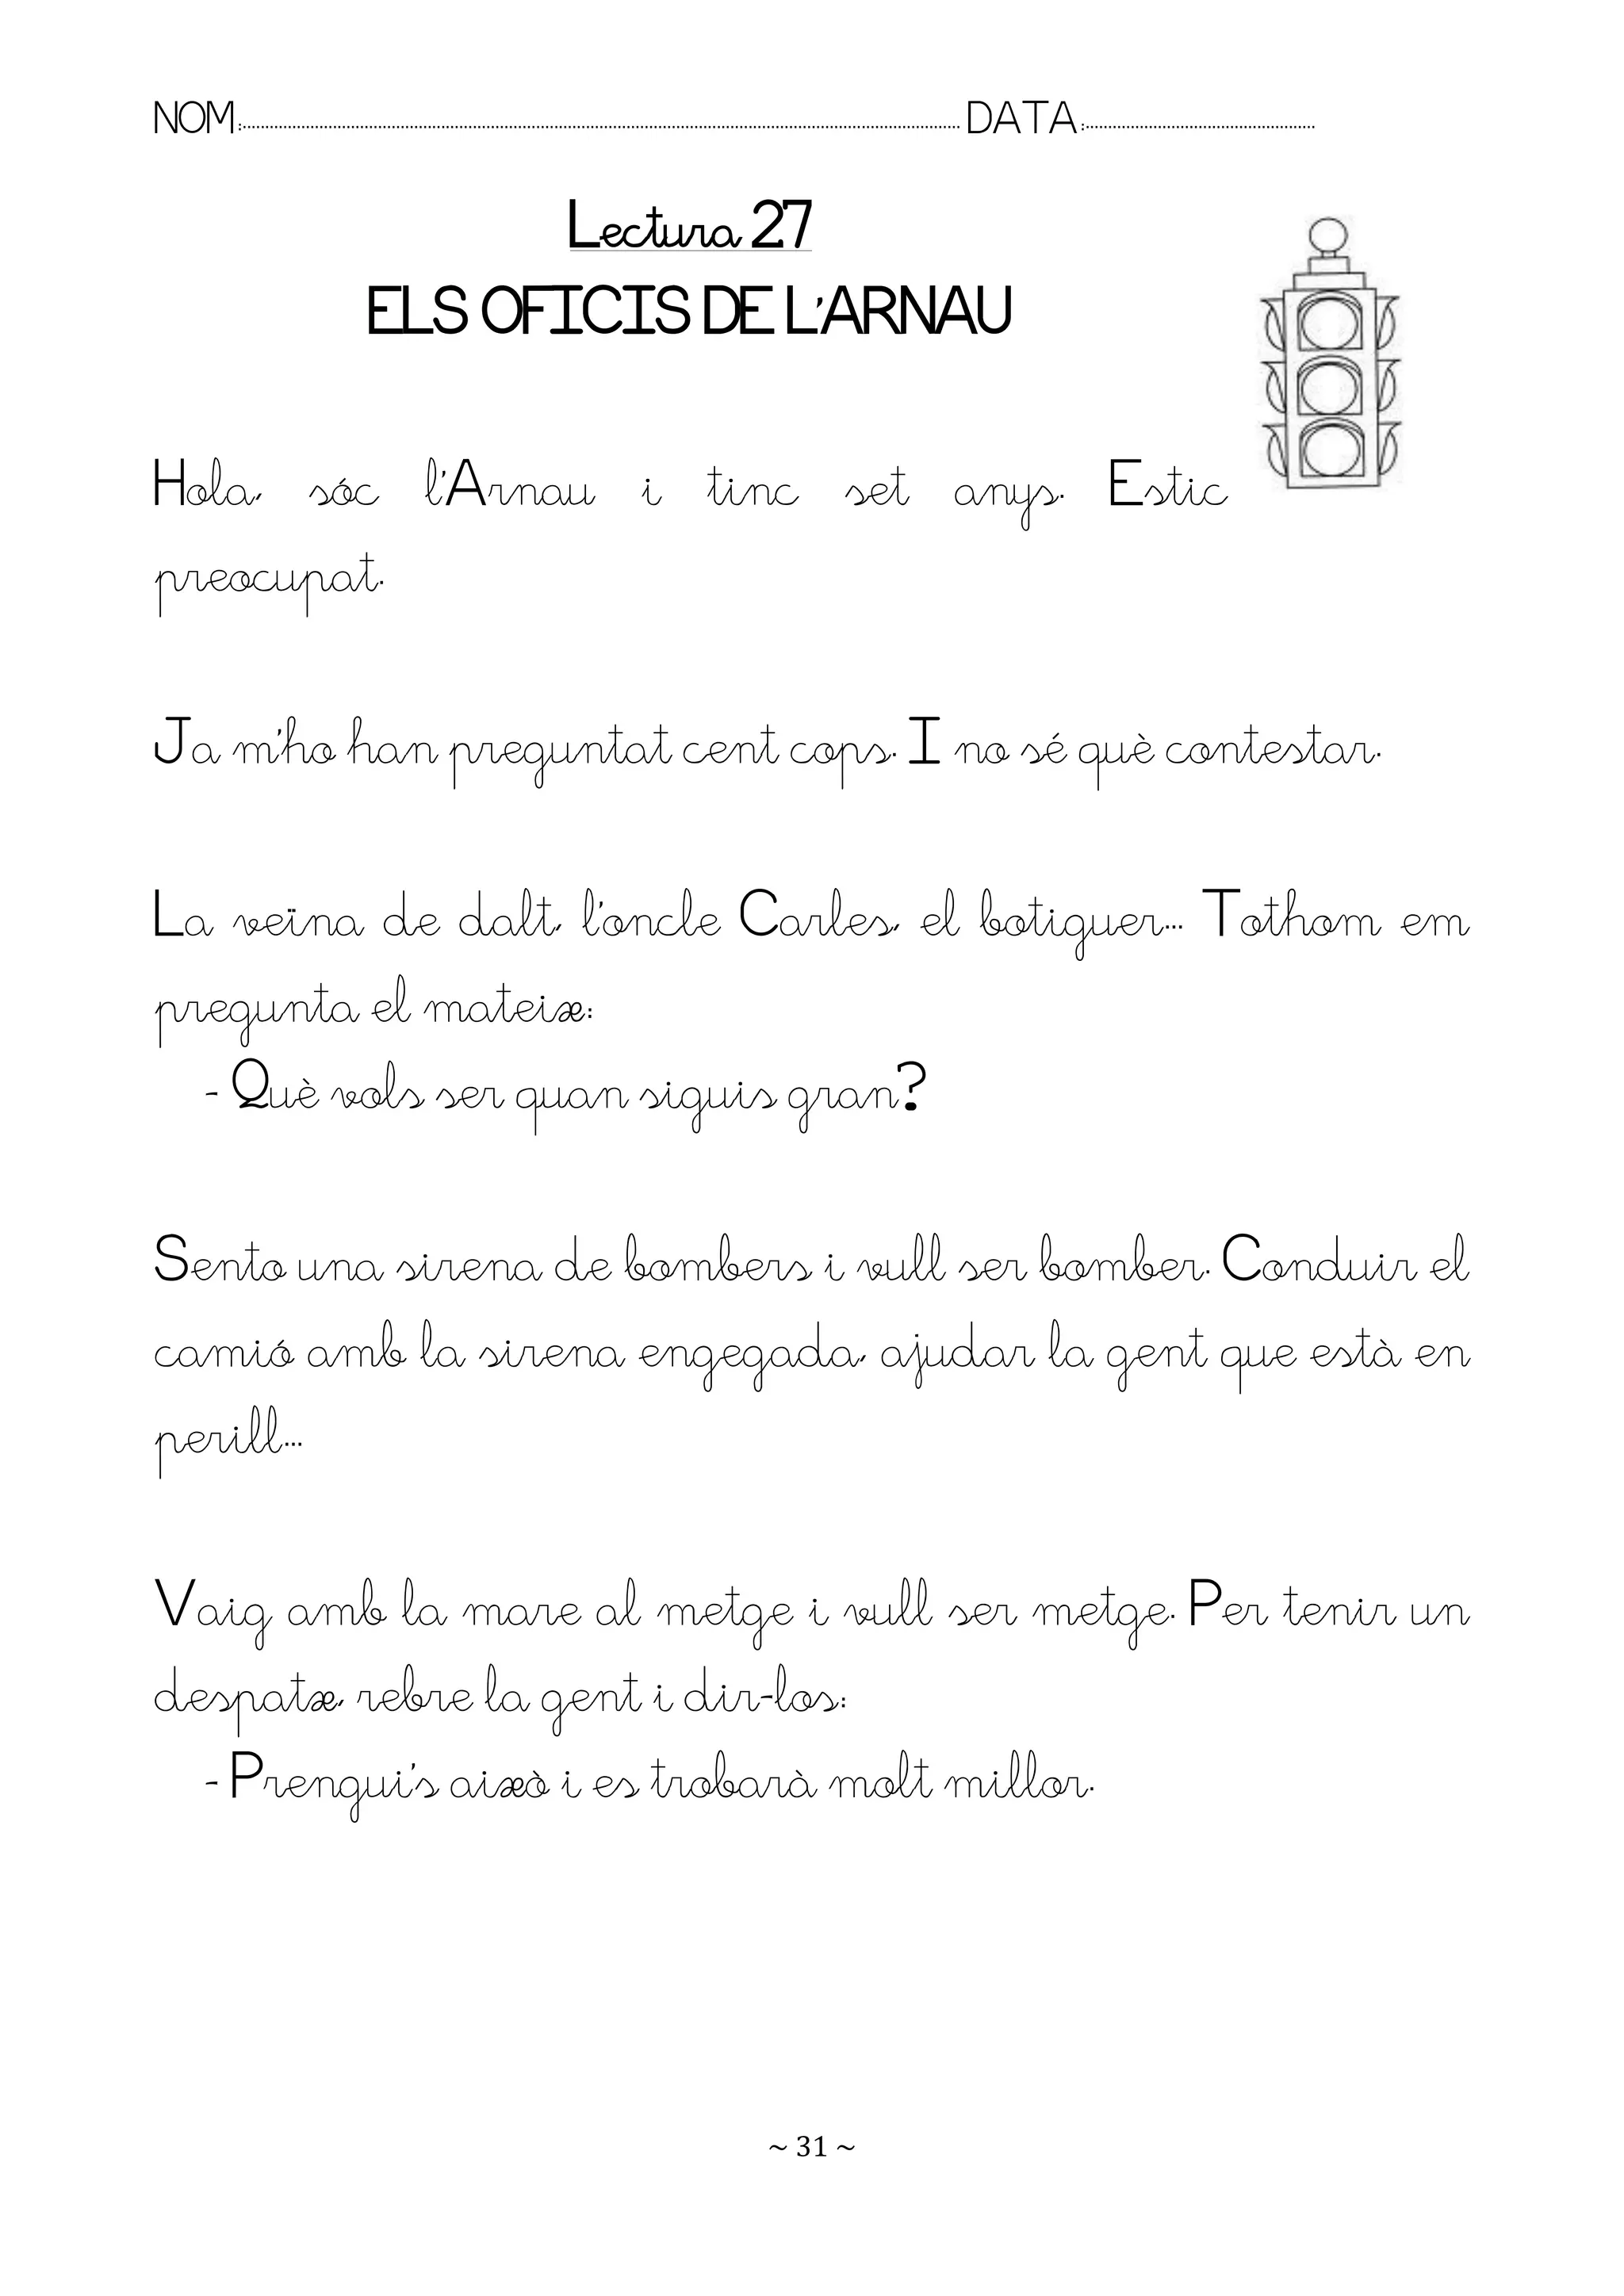 NOM:.................................................. DATA:....................
Lectura 27
ELS OFICIS DE L'ARNAU
Hola, sóc l'Arnau i tinc set anys. Estic
preocupat.
Ja m'ho han preguntat cent cops. I no sé què contestar.
La veïna de dalt, l'oncle Carles, el botiguer... Tothom em
pregunta el mateix:
- Què vols ser quan siguis gran?
Sento una sirena de bombers i vull ser bomber. Conduir el
camió amb la sirena engegada, ajudar la gent que està en
perill...
Vaig amb la mare al metge i vull ser metge. Per tenir un
despatx, rebre la gent i dir-los:
- Prengui's això i es trobarà molt millor.
~ 31 ~